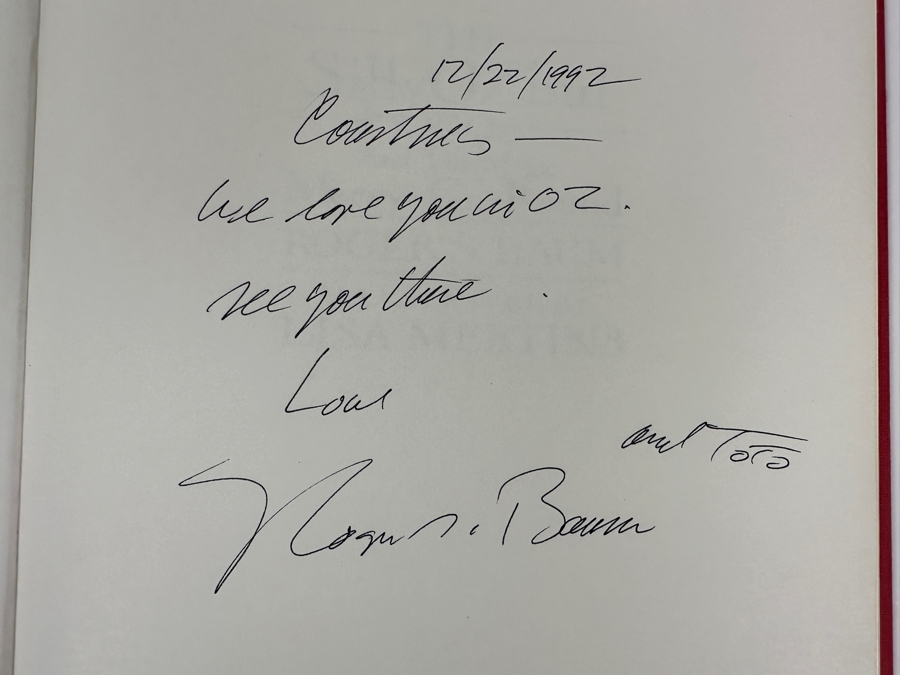 12/22/1992
Courtney —
We love you in OZ.
see you there.
Love
and ToTo
Roger S. Baum
ROGER S. BAUM